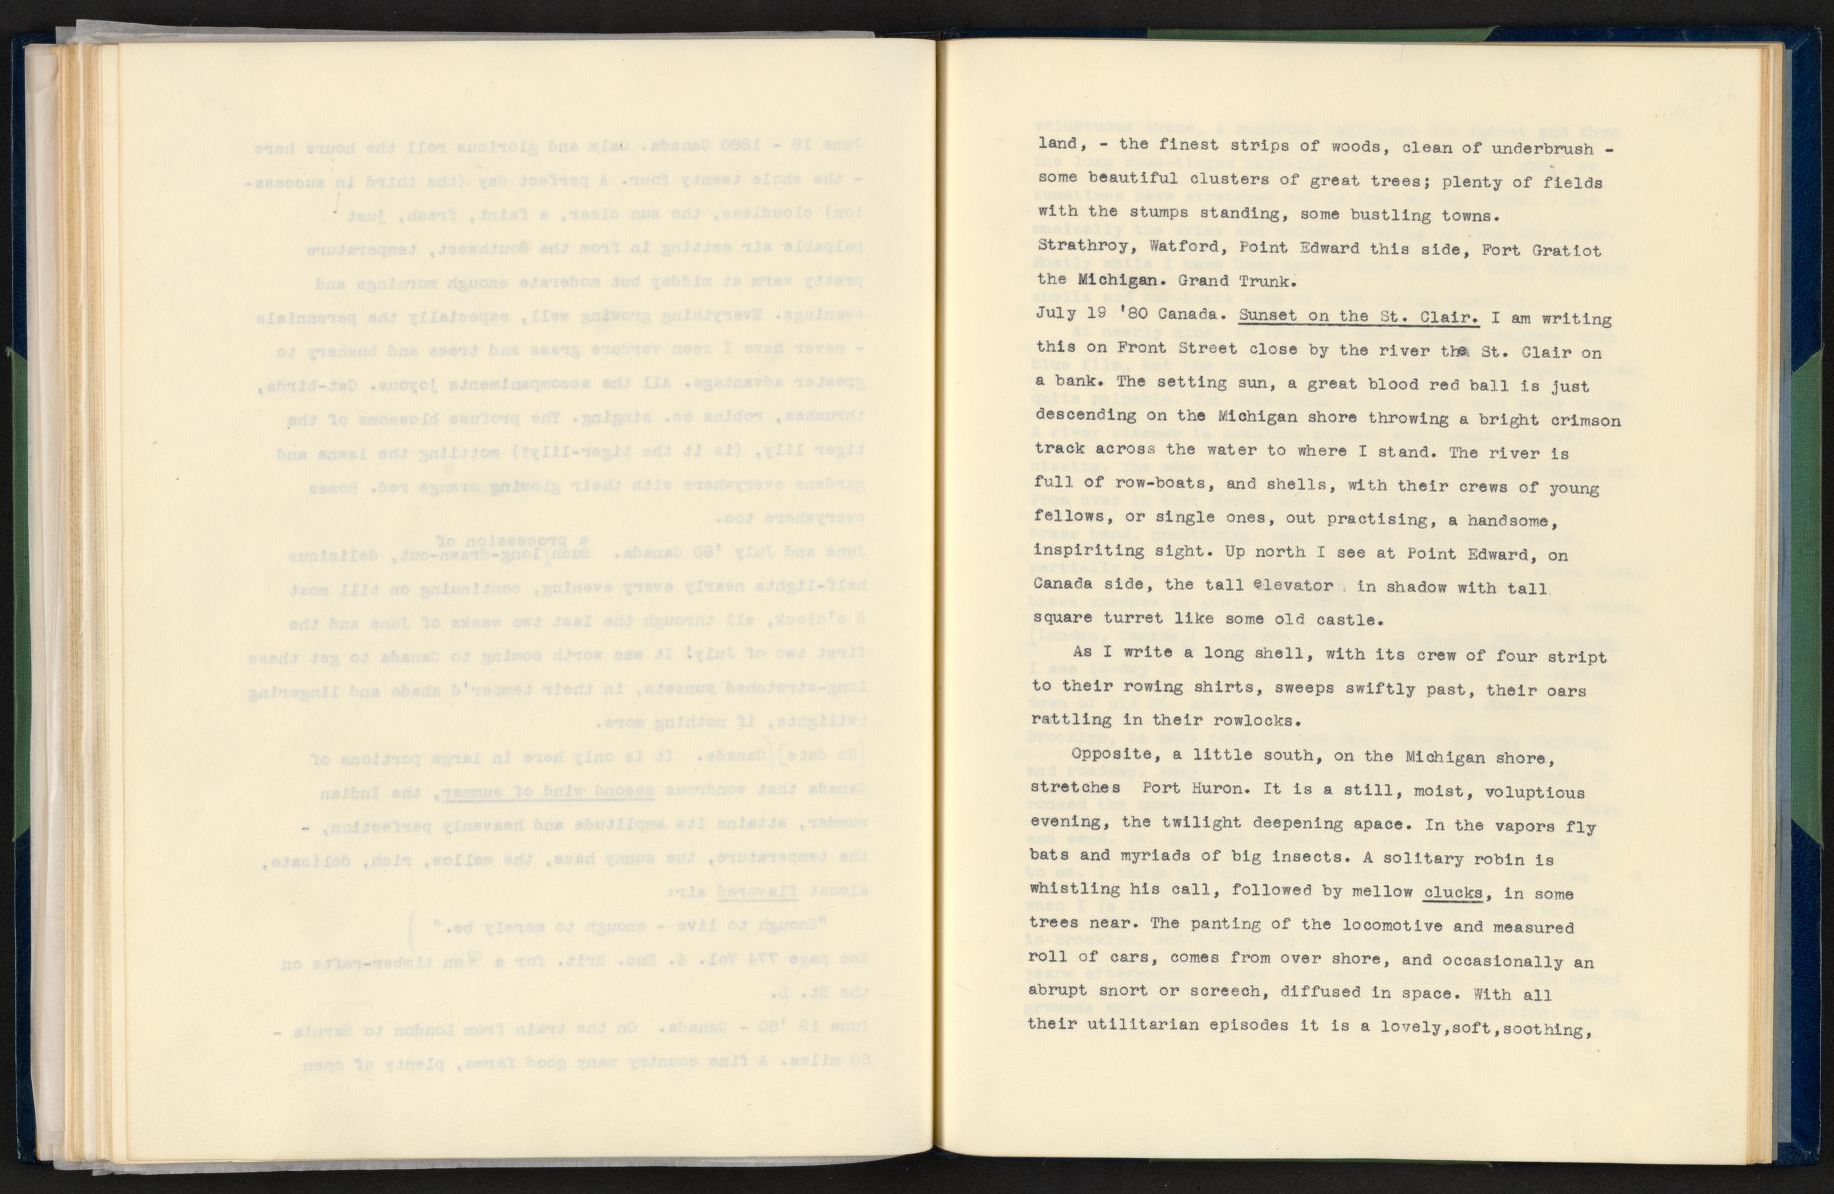 land, - the finest strips of woods, clean of underbrush -
some beautiful clusters of great trees; plenty of fields
with the stumps standing, some bustling towns.
Strathroy, Watford, Point Edward this side, Fort Gratiot
the Michigan. Grand Trunk.
July 19 '80 Canada. Sunset on the St. Clair. I am writing
this on Front Street close by the river the St. Clair on
a bank. The setting sun, a great blood red ball is just
descending on the Michigan shore throwing a bright crimson
track across the water to where I stand. The river is
full of row-boats, and shells, with their crews of young
fellows, or single ones, out practising, a handsome,
inspiriting sight. Up north I see at Point Edward, on
Canada side, the tall elevator in shadow with tall
square turret like some old castle.
As I write a long shell, with its crew of four stript
to their rowing shirts, sweeps swiftly past, their oars
rattling in their rowlocks.
Opposite, a little south, on the Michigan shore,
stretches Port Huron. It is a still, moist, voluptious
evening, the twilight deepening apace. In the vapors fly
bats and myriads of big insects. A solitary robin is
whistling his call, followed by mellow clucks, in some
trees near. The panting of the locomotive and measured
roll of cars, comes from over shore, and occasionally an
abrupt snort or screech, diffused in space. With all
their utilitarian episodes it is a lovely,soft,soothing,